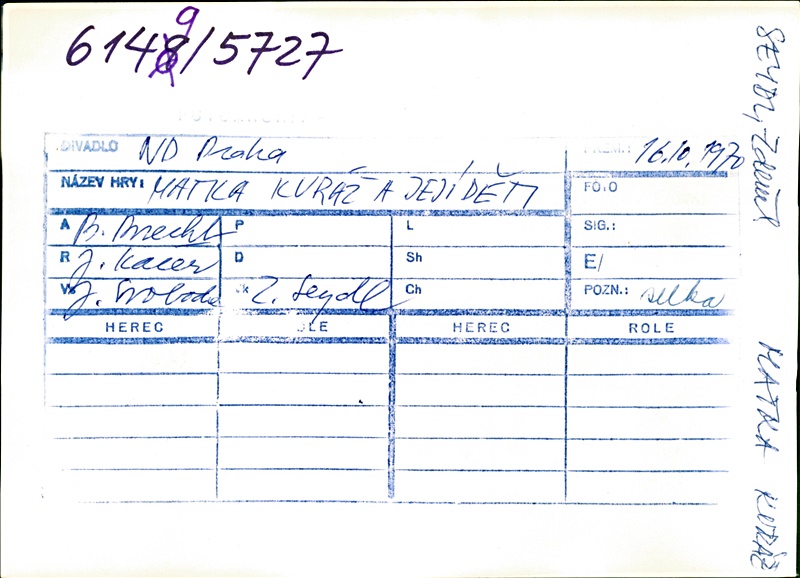 6149/5727
DIVADLO ND Praha PREM.: 16.10.1970
NÁZEV HRY: MATKA KURÁŽ A JEJÍ DĚTI FOTO
A B. Brecht P L SIG.:
R J. Kacer D Sh E/
Vs J. Svoboda Sk Z. Seydl Ch POZN.:
HEREC ROLE HEREC ROLE
SEYDL, Zdeněk
MATKA KURÁŽ